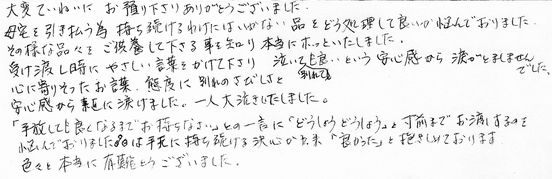 大変ていねいに お預り下さりありがとうございました。
母宅を引き払う為 持ち続けるわけにはいかない 品をどう処理して良いか悩んでおりました。
その様な品々を ご供養して下さる事を知り 本当にホッといたしました。
受け渡し時に やさしい言葉をかけて下さり 泣いても良い という 安心感から 涙がとましませんでした。
心に寄りそったお言葉、態度に 別れのさびしさと
安心感から 素直に涙けました。一人大泣きいたしました。
「手放しても良くなるまでお持ちなさい」との一言に「どうしよう どうしよう」と 寸前までお渡しするのを
悩んでおりました 手元に持ち続ける 決心が出来 「良かった」と 抱きしめております
色々と 本当に 有難とうございました。